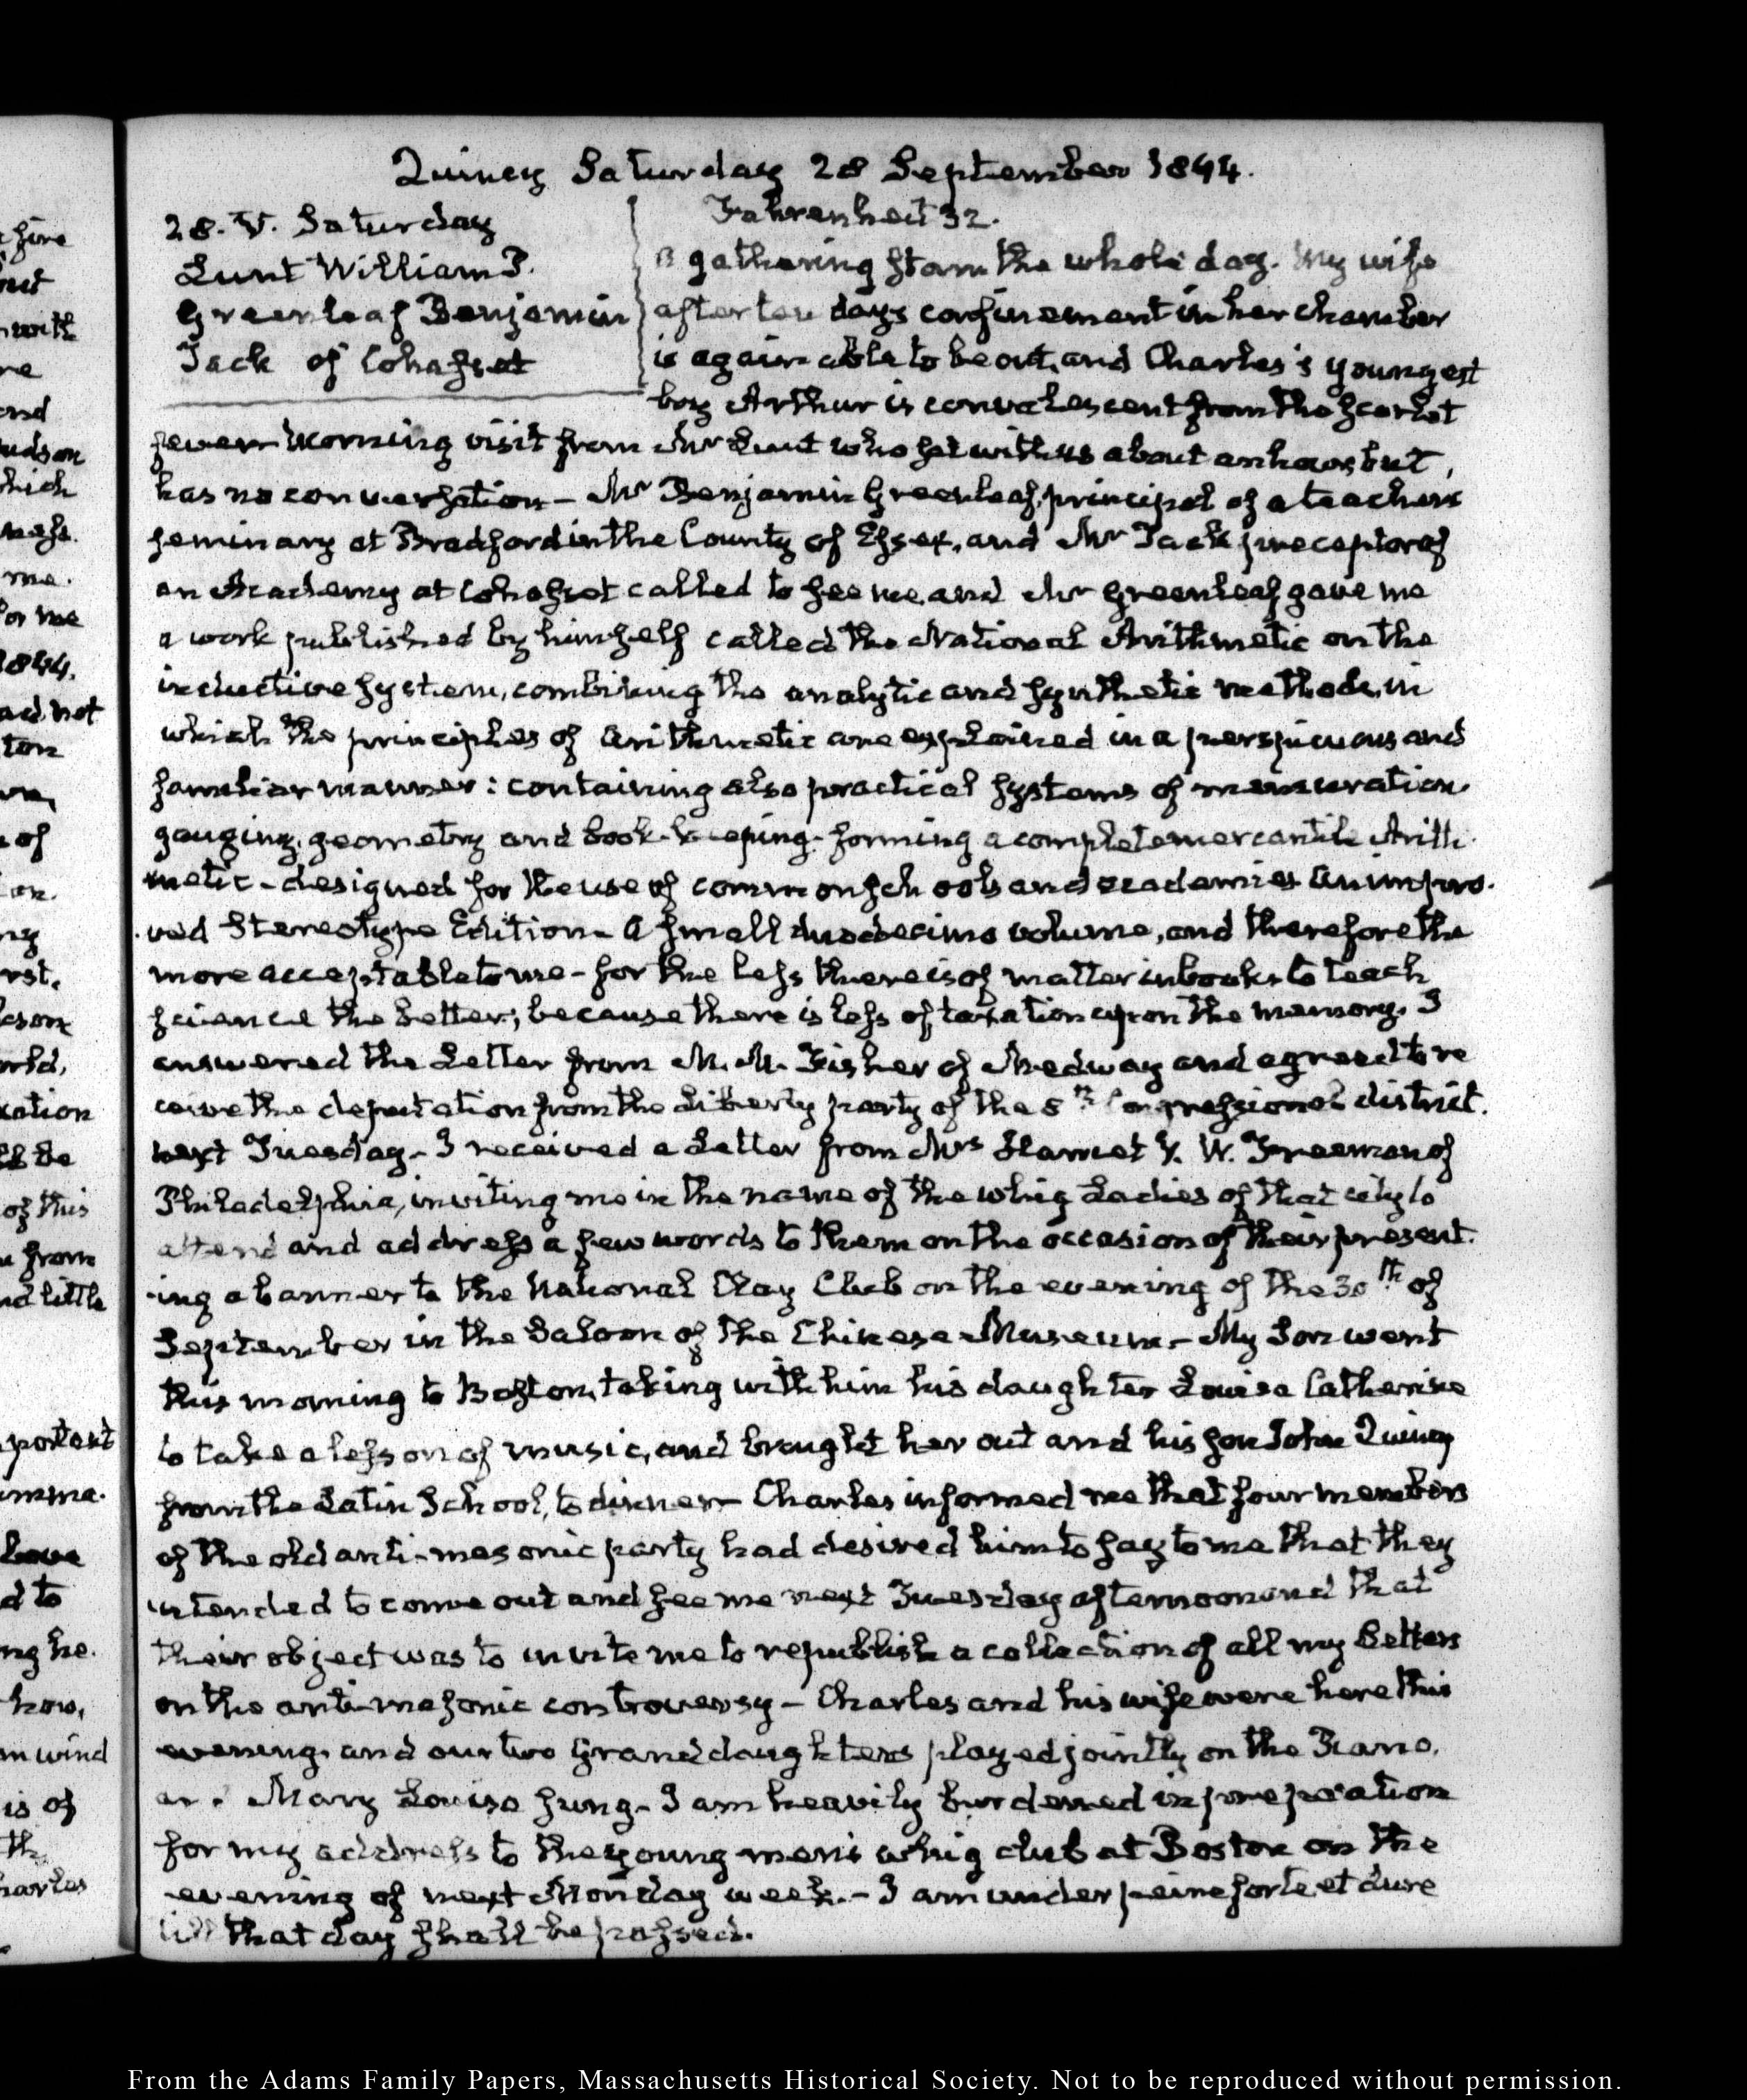 fire
out
with
re
and
udson
hich
ness.
me.
for me
1844.
ad not
ton
of
on.
ng
rst.
orld,
xation
of this
from
nd little
portant
mma.
have
d to
ng he.
how,
m wind
is of
th
harles
Quincy Saturday 28 September 1844.
28. V. Saturday
Lunt William P.
Greenleaf Benjamin
Jack of Cohasset
Fahrenheit 32.
A gathering storm the whole day. My wife
after ten days confinement in her chamber
is again able to be out, and Charles's youngest
boy Arthur is convalescent from the scarlet
fever Morning visit from Mr Lunt who sat with us about an hour, but,
has no conversation — Mr Benjamin Greenleaf, principal of a teachers
seminary at Bradford in the County of Essex, and Mr Jack preceptor of
an Academy at Cohasset called to see me, and Mr Greenleaf gave me
a work published by himself called the National Arithmetic on the
inductive system, combining the analytic and synthetic methods, in
which the principles of Arithmetic are explained in a perspicuous and
familiar manner: containing also practical systems of mensuration.
gauging, geometry and book-keeping- forming a complete mercantile Arith-
metic - designed for the use of common schools and academies. An impro-
ved Stereotype Edition - A small duodecimo volume, and therefore the
more acceptable to me - for the less there is of matter in books to teach
science the better, because there is less of taxation upon the memory. I
answered the Letter from M. M. Fisher of Medway and agreed to re
ceive the deputation from the Liberty party of the 8th Congressional district.
next Tuesday - I received a Letter from Mrs Harriet Y. W. Freeman of
Philadelphia, inviting me in the name of the whig Ladies of that city to
attend and address a few words to them on the occasion of their present-
-ing a banner to the National Clay Club on the evening of the 30th of
September in the Saloon of the Chinese Museum. - My Son went
this morning to Boston, taking with him his daughter Louisa Catherine
to take a lesson of music, and brought her out and his son John Quincy
from the Latin School, to dinner - Charles informed me that four members
of the old anti-masonic party had desired him to say to me that they
intended to come out and see me next Tuesday afternoon and that
their object was to invite me to republish a collection of all my Letters
on the anti-masonic controversy - Charles and his wife were here this
evening, and our two Granddaughters played jointly on the Piano,
and Mary Louisa sung - I am heavily burdened in preparation
for my address to the young men's whig club at Boston on the
evening of next Monday week. - I am under peine forte et dure
till that day shall be passed.
From the Adams Family Papers, Massachusetts Historical Society. Not to be reproduced without permission.